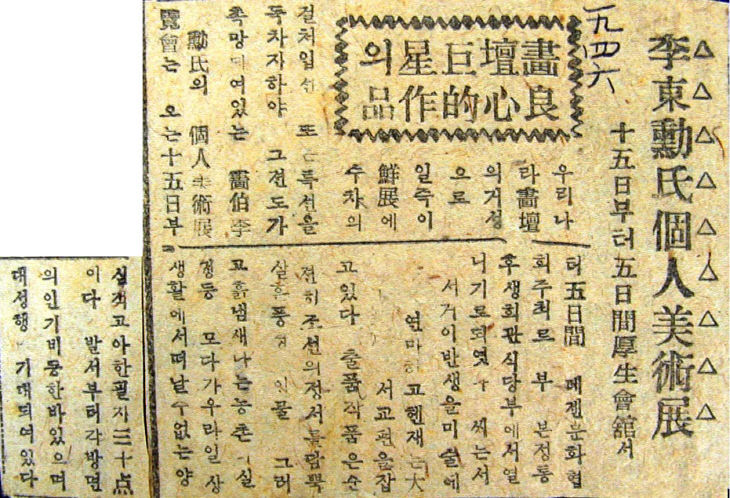 一九四六
李東勳氏個人美術展
十五日부터五日間厚生會舘서
畫壇巨星의
良心的作品
우리나
라畫壇
의거성
으로
일즉이
鮮展에
수차의
걸처입선 또는특선을
독차지하야 그전도가
촉망되여있는 畵伯李
勳氏의 個人美術展
覽會는 오는十五日부
터五日間 메젠문화협
회주최로 부 본정통
후생회관식당부에서열
니기로되엿 씨는서
서거이반생을미술에
연마하고현재는大
서교편을잡
고있다 출품작품은순
전히조선의정서를담뿍
실은풍경 인물 그러
고흙냄새나는농촌 실
경등 모다가우리일상
생활에서떠날수없는양
심적고아한필치三十点
이다 발서부터각방면
의인기비등한바있으며
대성행 기대되여있다